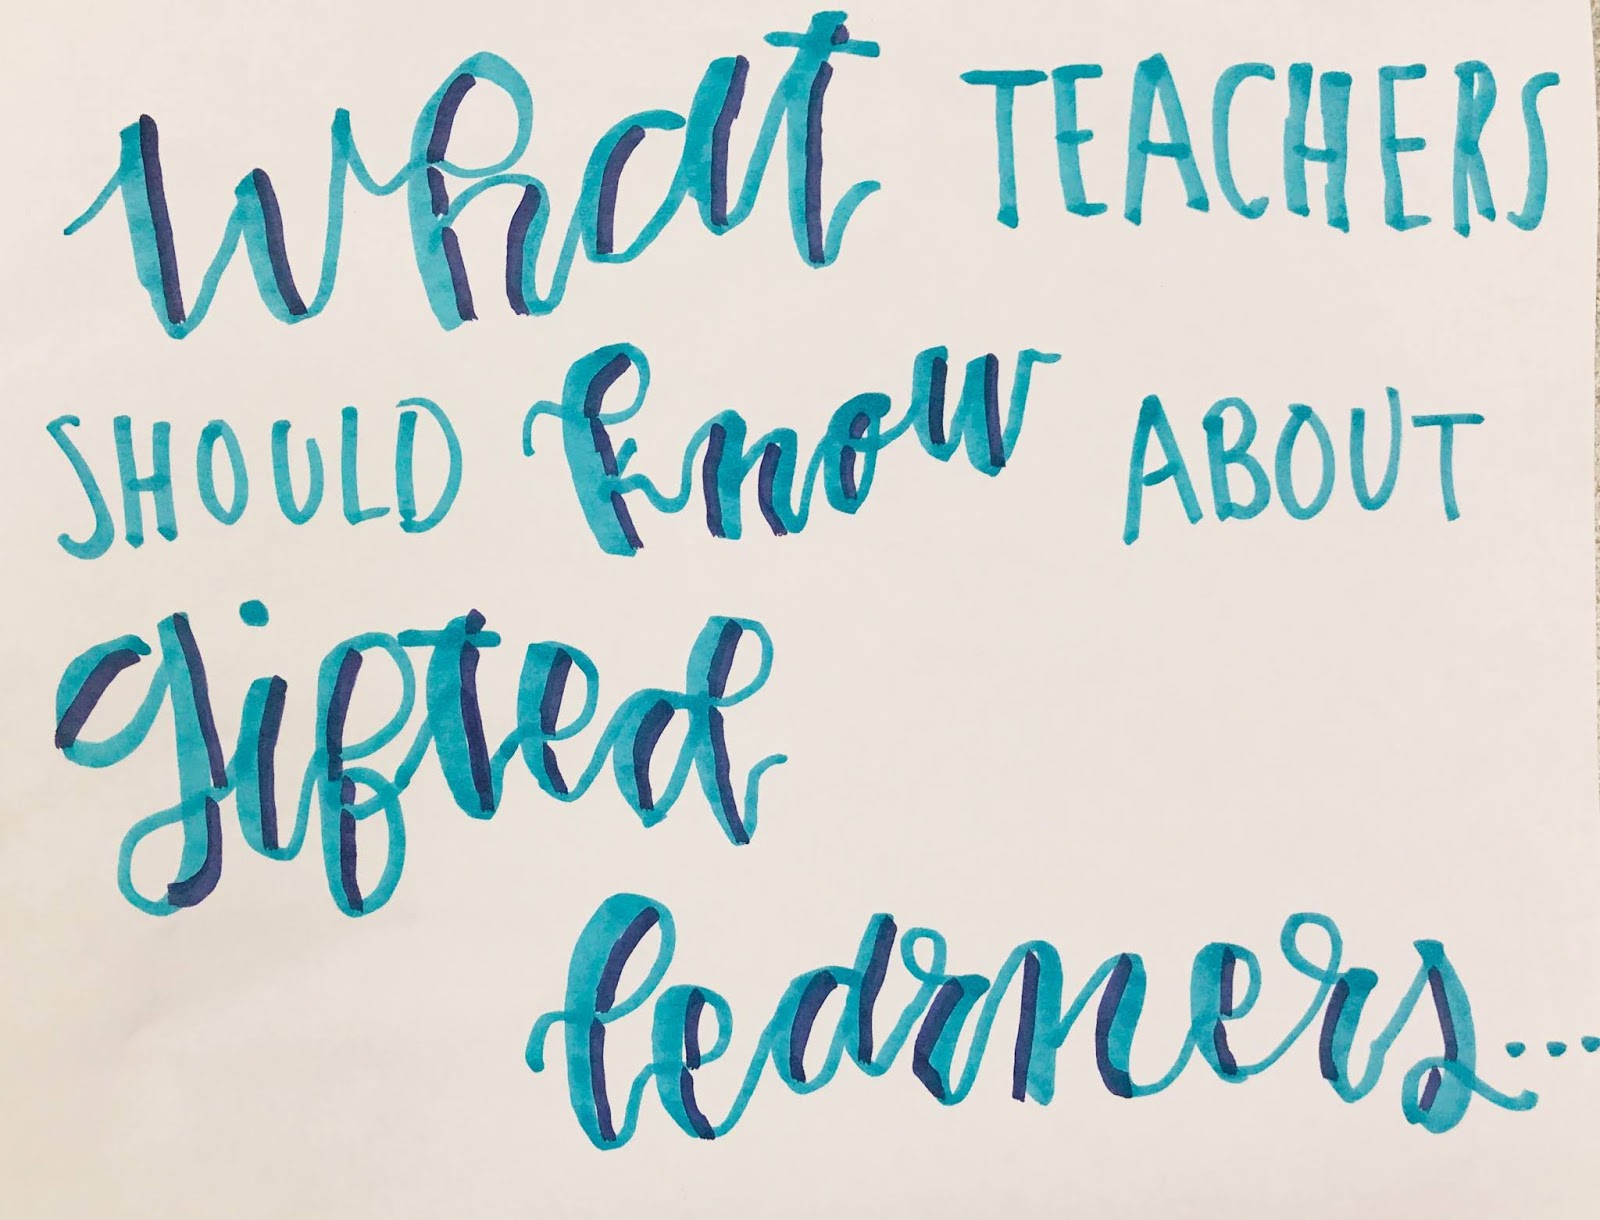 What TEACHERS
SHOULD know ABOUT
Gifted
learners...